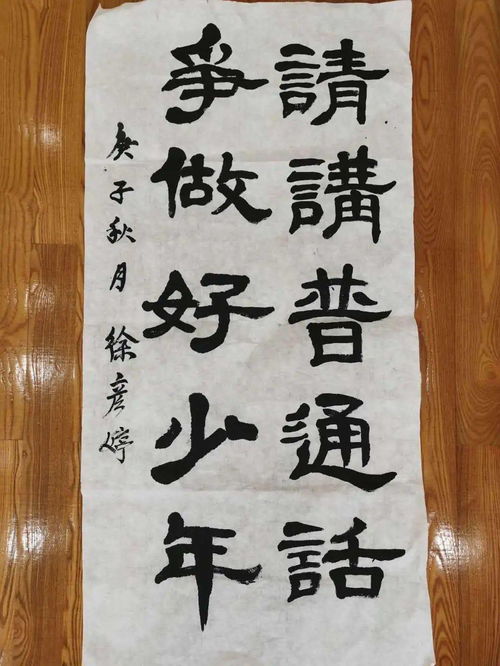 請講普通話
爭做好少年
庚子秋月 徐彦婷